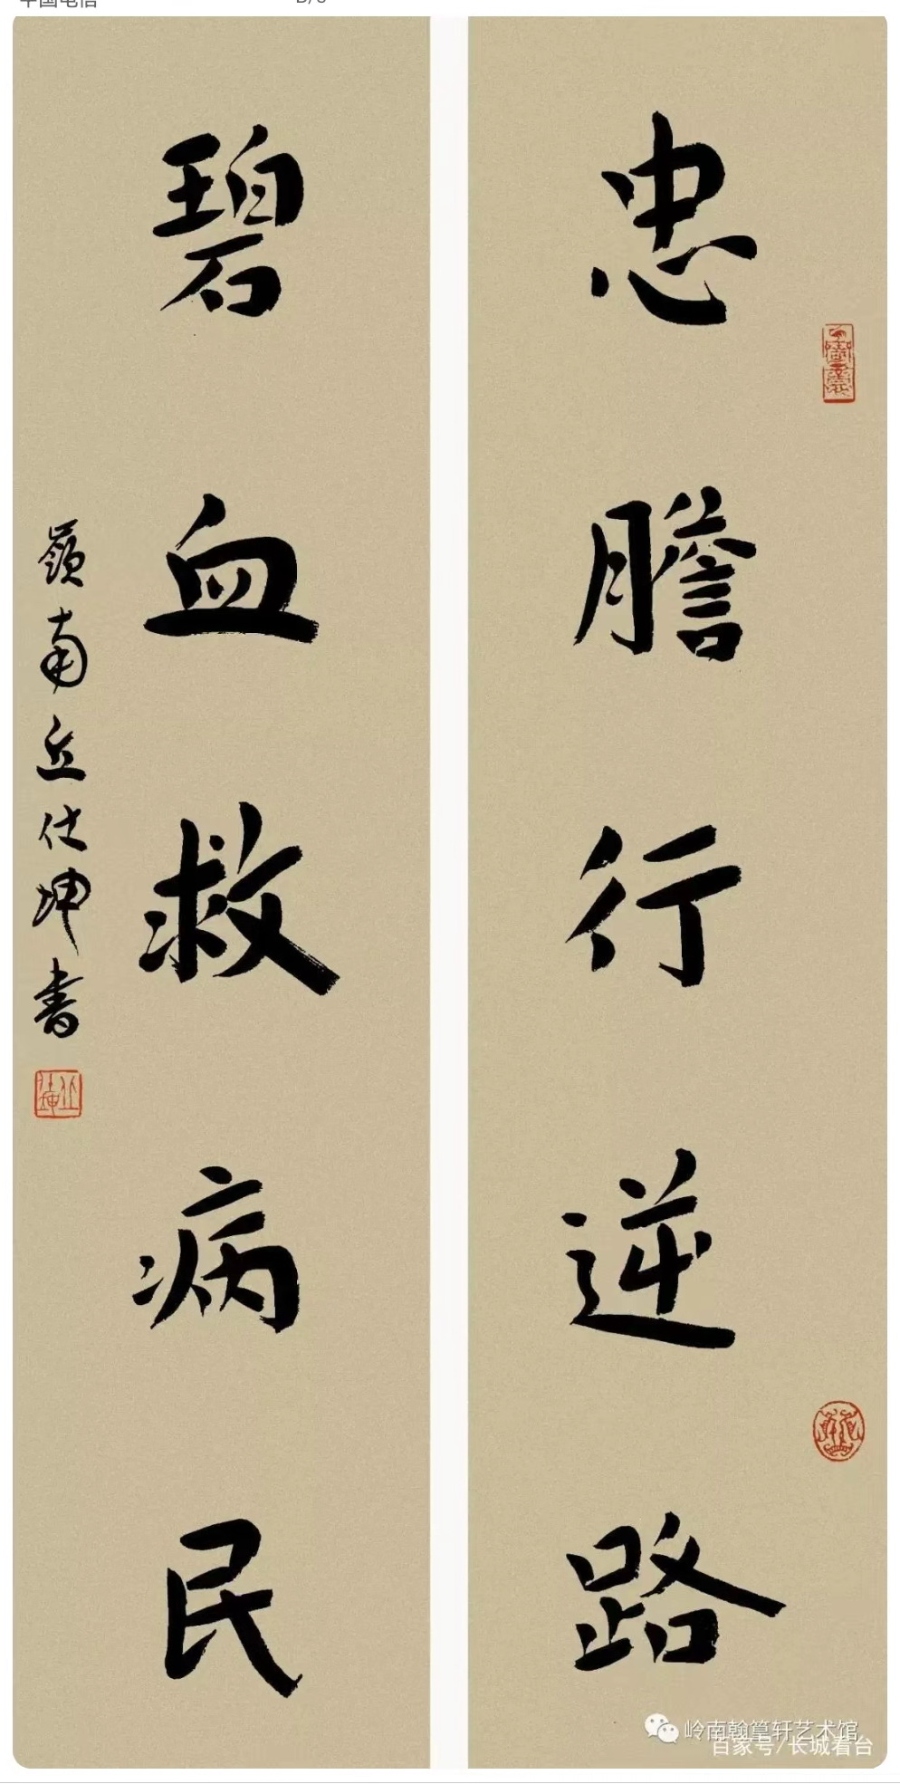 忠膽行逆路
碧血救病民
嶺南丘仕坤書
岭南翰墨轩艺术馆
百家号/长城看台